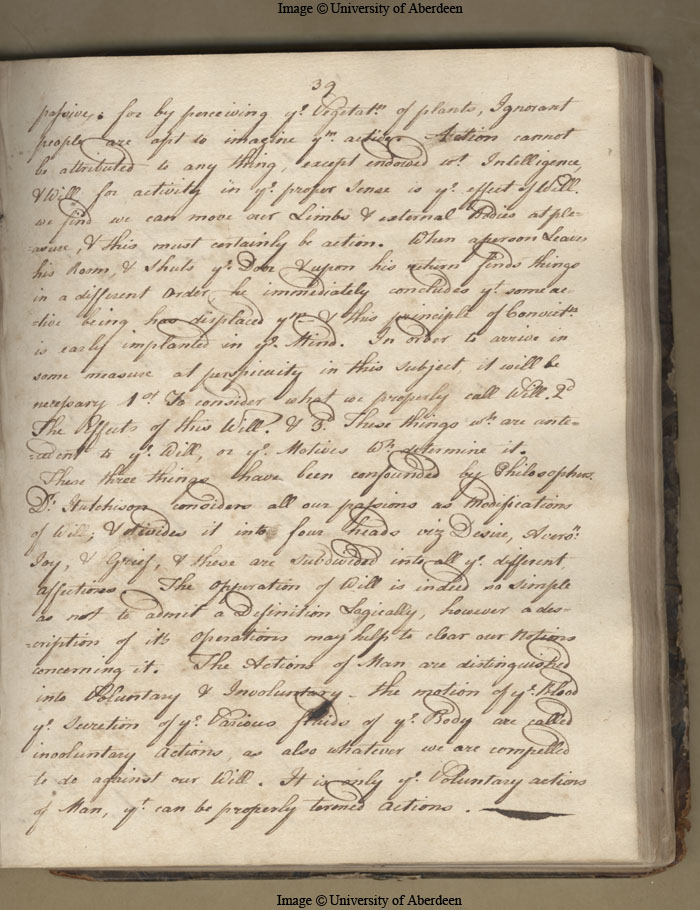 Image © University of Aberdeen
39
passive; for by perceiving yͤ Vegetatⁿ of plants, Ignorant
people are apt to imagine yᵐ active. Action cannot
be attributed to any thing, except endowed wᵗ Intelligence,
& Will, for activity in yͤ proper sense is yͤ effect of Will.
we find we can move our Limbs & external Bodies at ple-
=asure, & this must certainly be action. When a person Leaves
his Room, & Shuts yͤ Door & upon his return finds things
in a different order he immediately concludes yᵗ some ac
-tive being has displaced yᵐ & this principle of Convictⁿ
is early implanted in yͤ Mind. In order to arrive in
some measure at perspicuity in this subject it will be
necessary 1ˢᵗ To consider what we properly call Will. 2ᵈ
The Effects of this Will. & 3ᵈ These things wᶜʰ are ante-
=cedent to yͤ Will, or yͤ Motives wᶜʰ determine it.
These three things have been confounded by Philosophers.
Dʳ Hutchison considers all our passions as Modifications
of Will; & divides it into four heads viz Desire, Aversⁿ
Joy, & Grief, & these are subdivided into all yͤ different
affections. The Opperation of Will is indeed so simple
as not to admit a Definition Logically, however a des-
=cription of it's Operations may help to clear our Notions
concerning it. The Actions of Man are distinguished
into Voluntary & Involuntary. the motion of yͤ Blood
yͤ Secretion of yͤ Various fluids of yͤ Body are called
involuntary actions, as also whatever we are compelled
to do against our Will. It is only yͤ Voluntary actions
of Man, yᵗ can be properly termed actions.
Image © University of Aberdeen